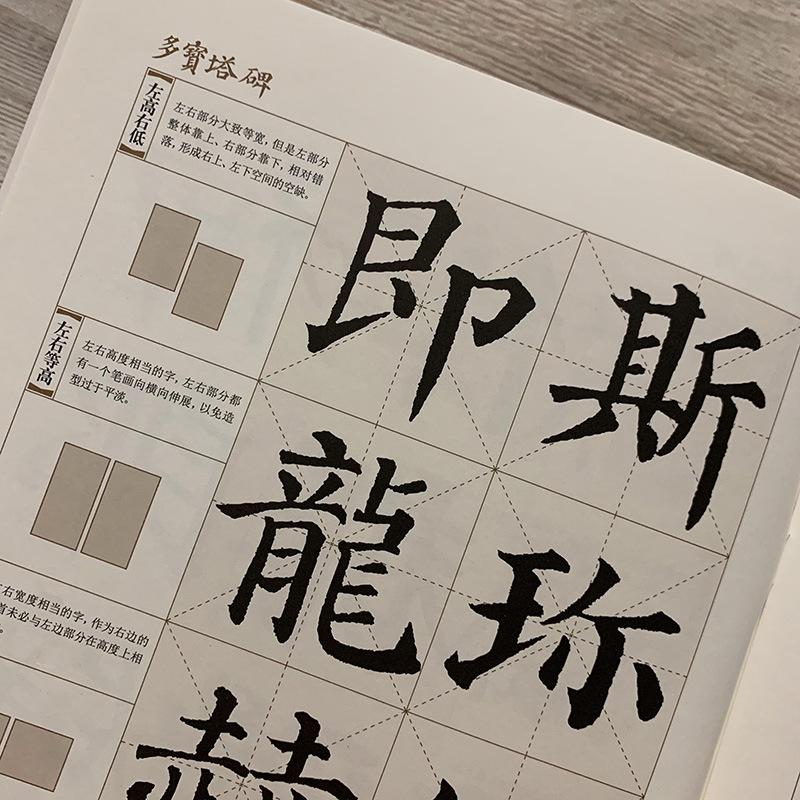 多寶塔碑
左高右低
左右部分大致等宽，但是左部分
整体靠上、右部分靠下，相对错
落，形成右上、左下空间的空缺。
即 斯
左右等高
左右高度相当的字，左右部分都
有一个笔画向横向伸展，以免造
型过于平淡。
龍 珎
右宽度相当的字，作为右边的
首未必与左边部分在高度上相
赫